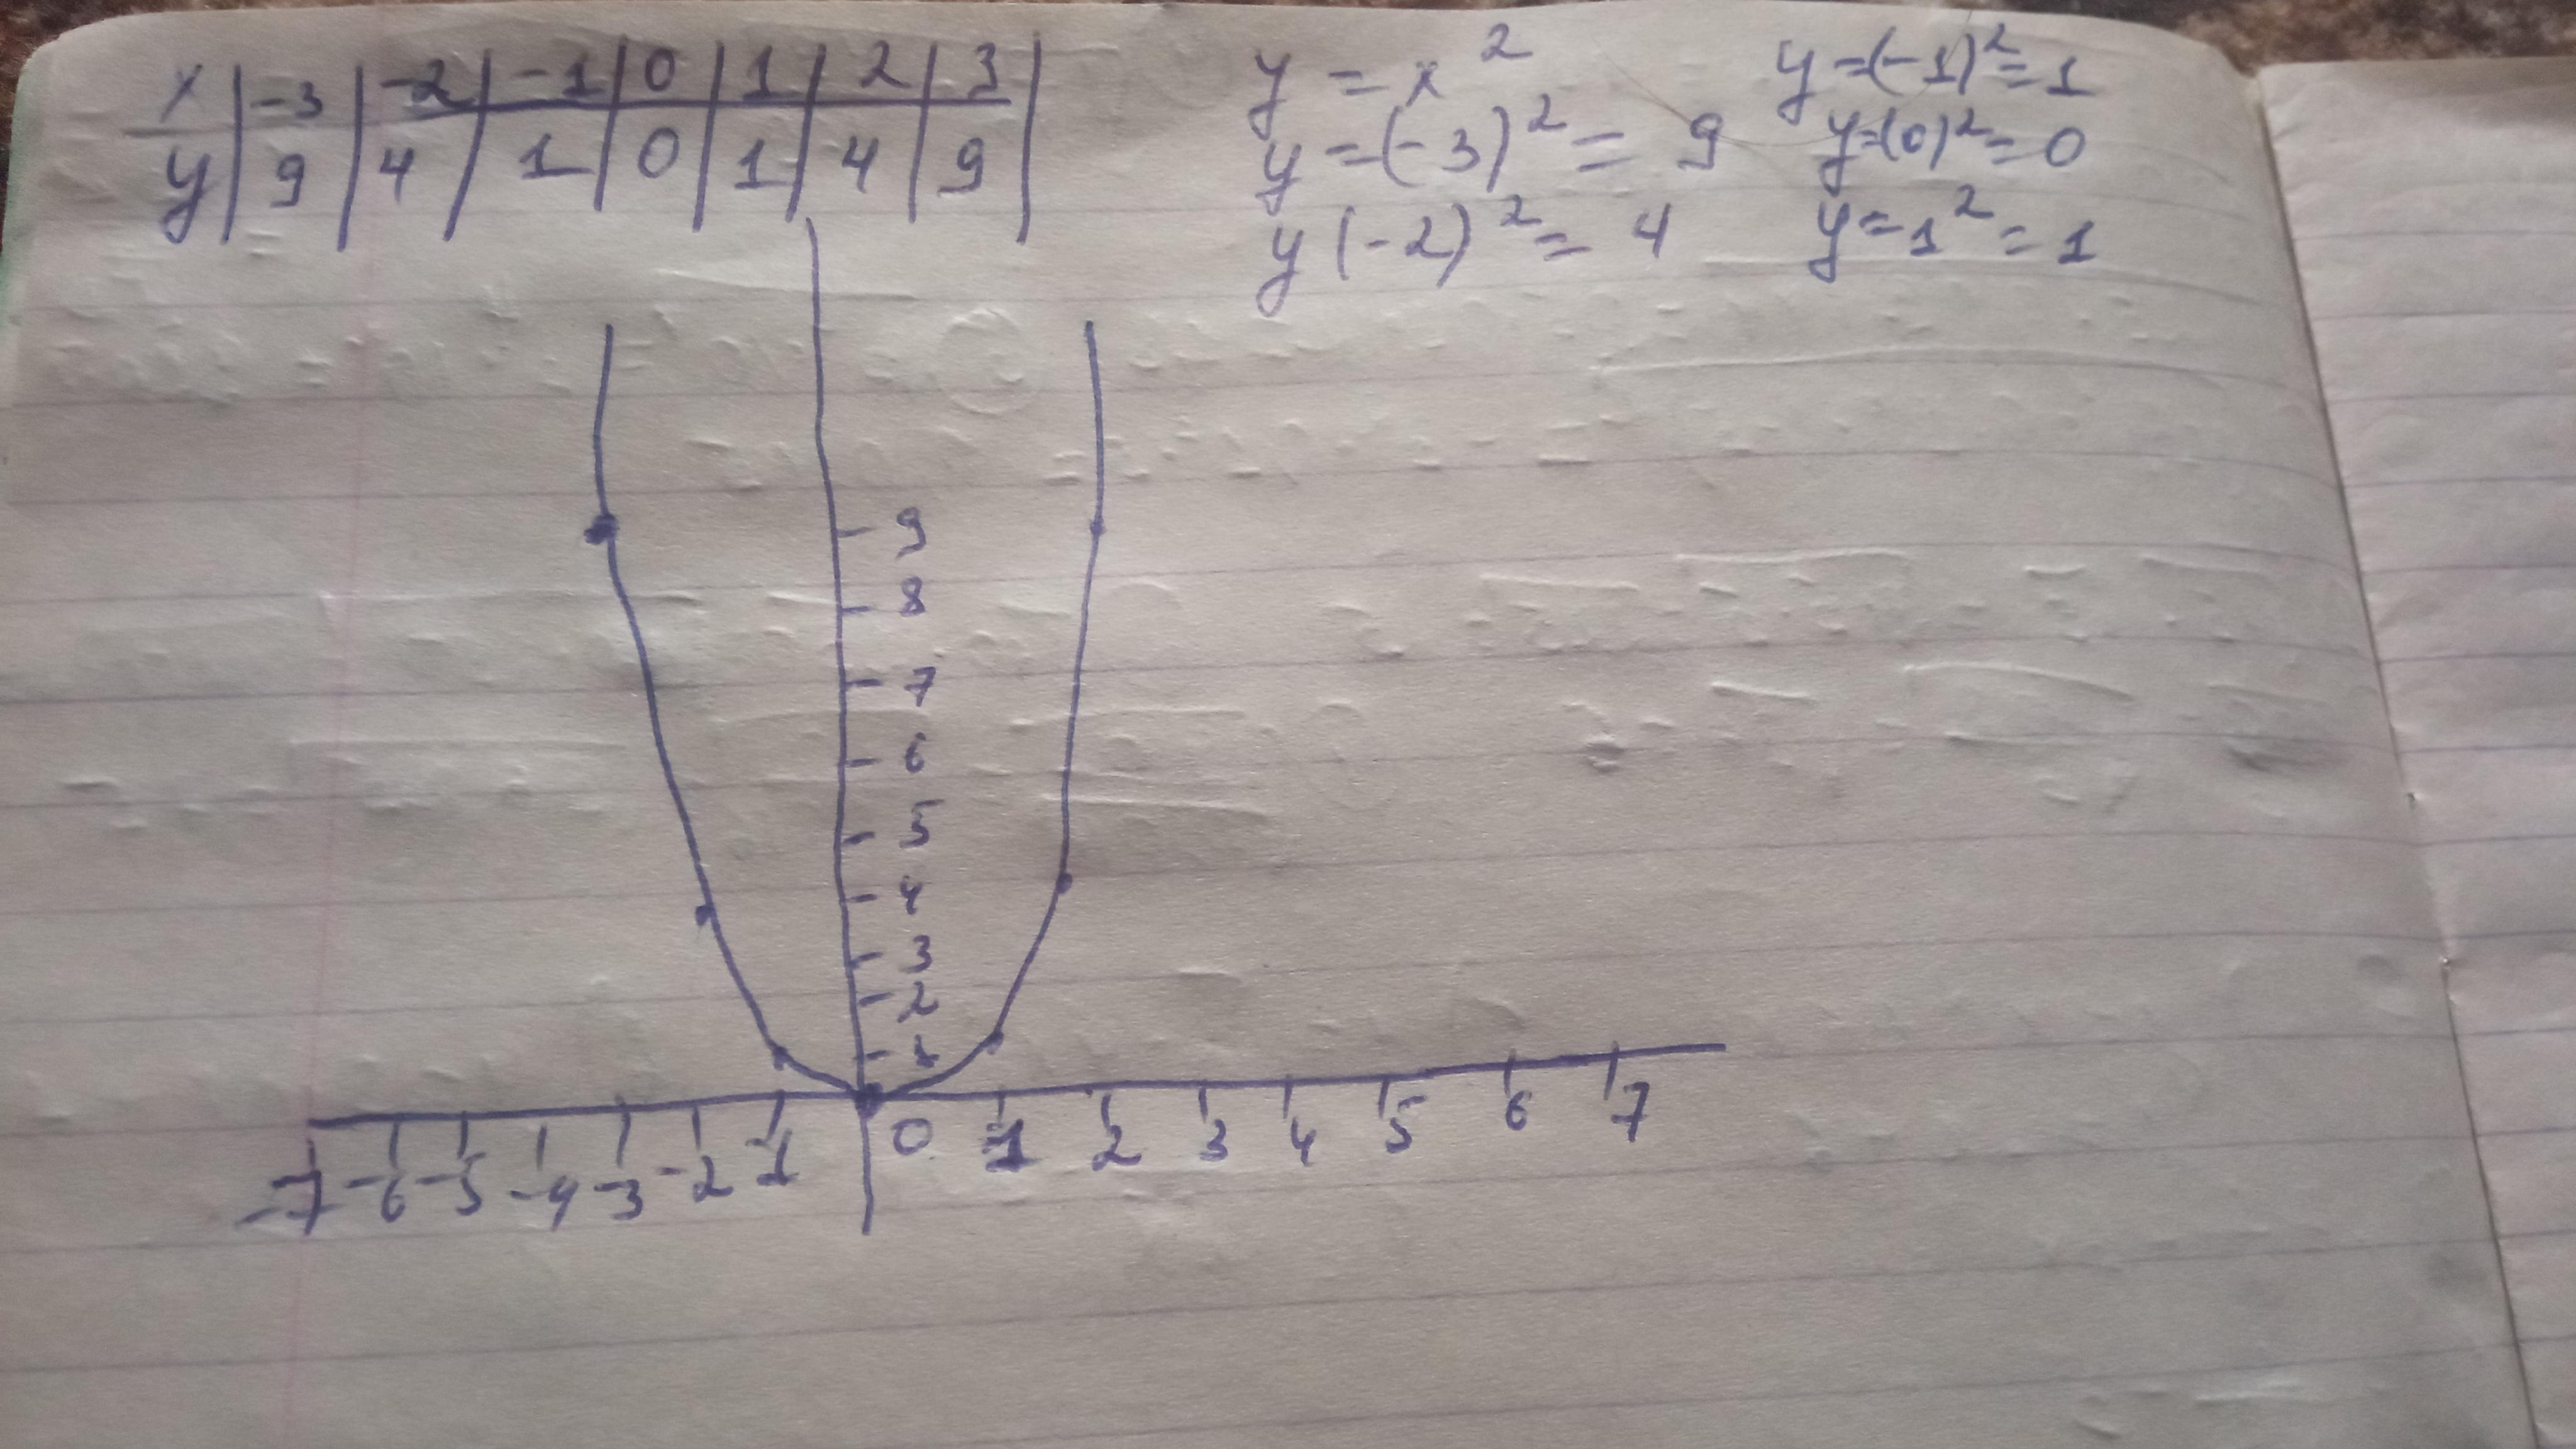 x | -3 | -2 | -1 | 0 | 1 | 2 | 3 |
y | 9 | 4 | 1 | 0 | 1 | 4 | 9 |
y = x²
y = (-3)² = 9
y (-2)² = 4
y = (-1)² = 1
y = (0)² = 0
y = 1² = 1
9
8
7
6
5
4
3
2
1
-7 -6 -5 -4 -3 -2 -1 0 1 2 3 4 5 6 7